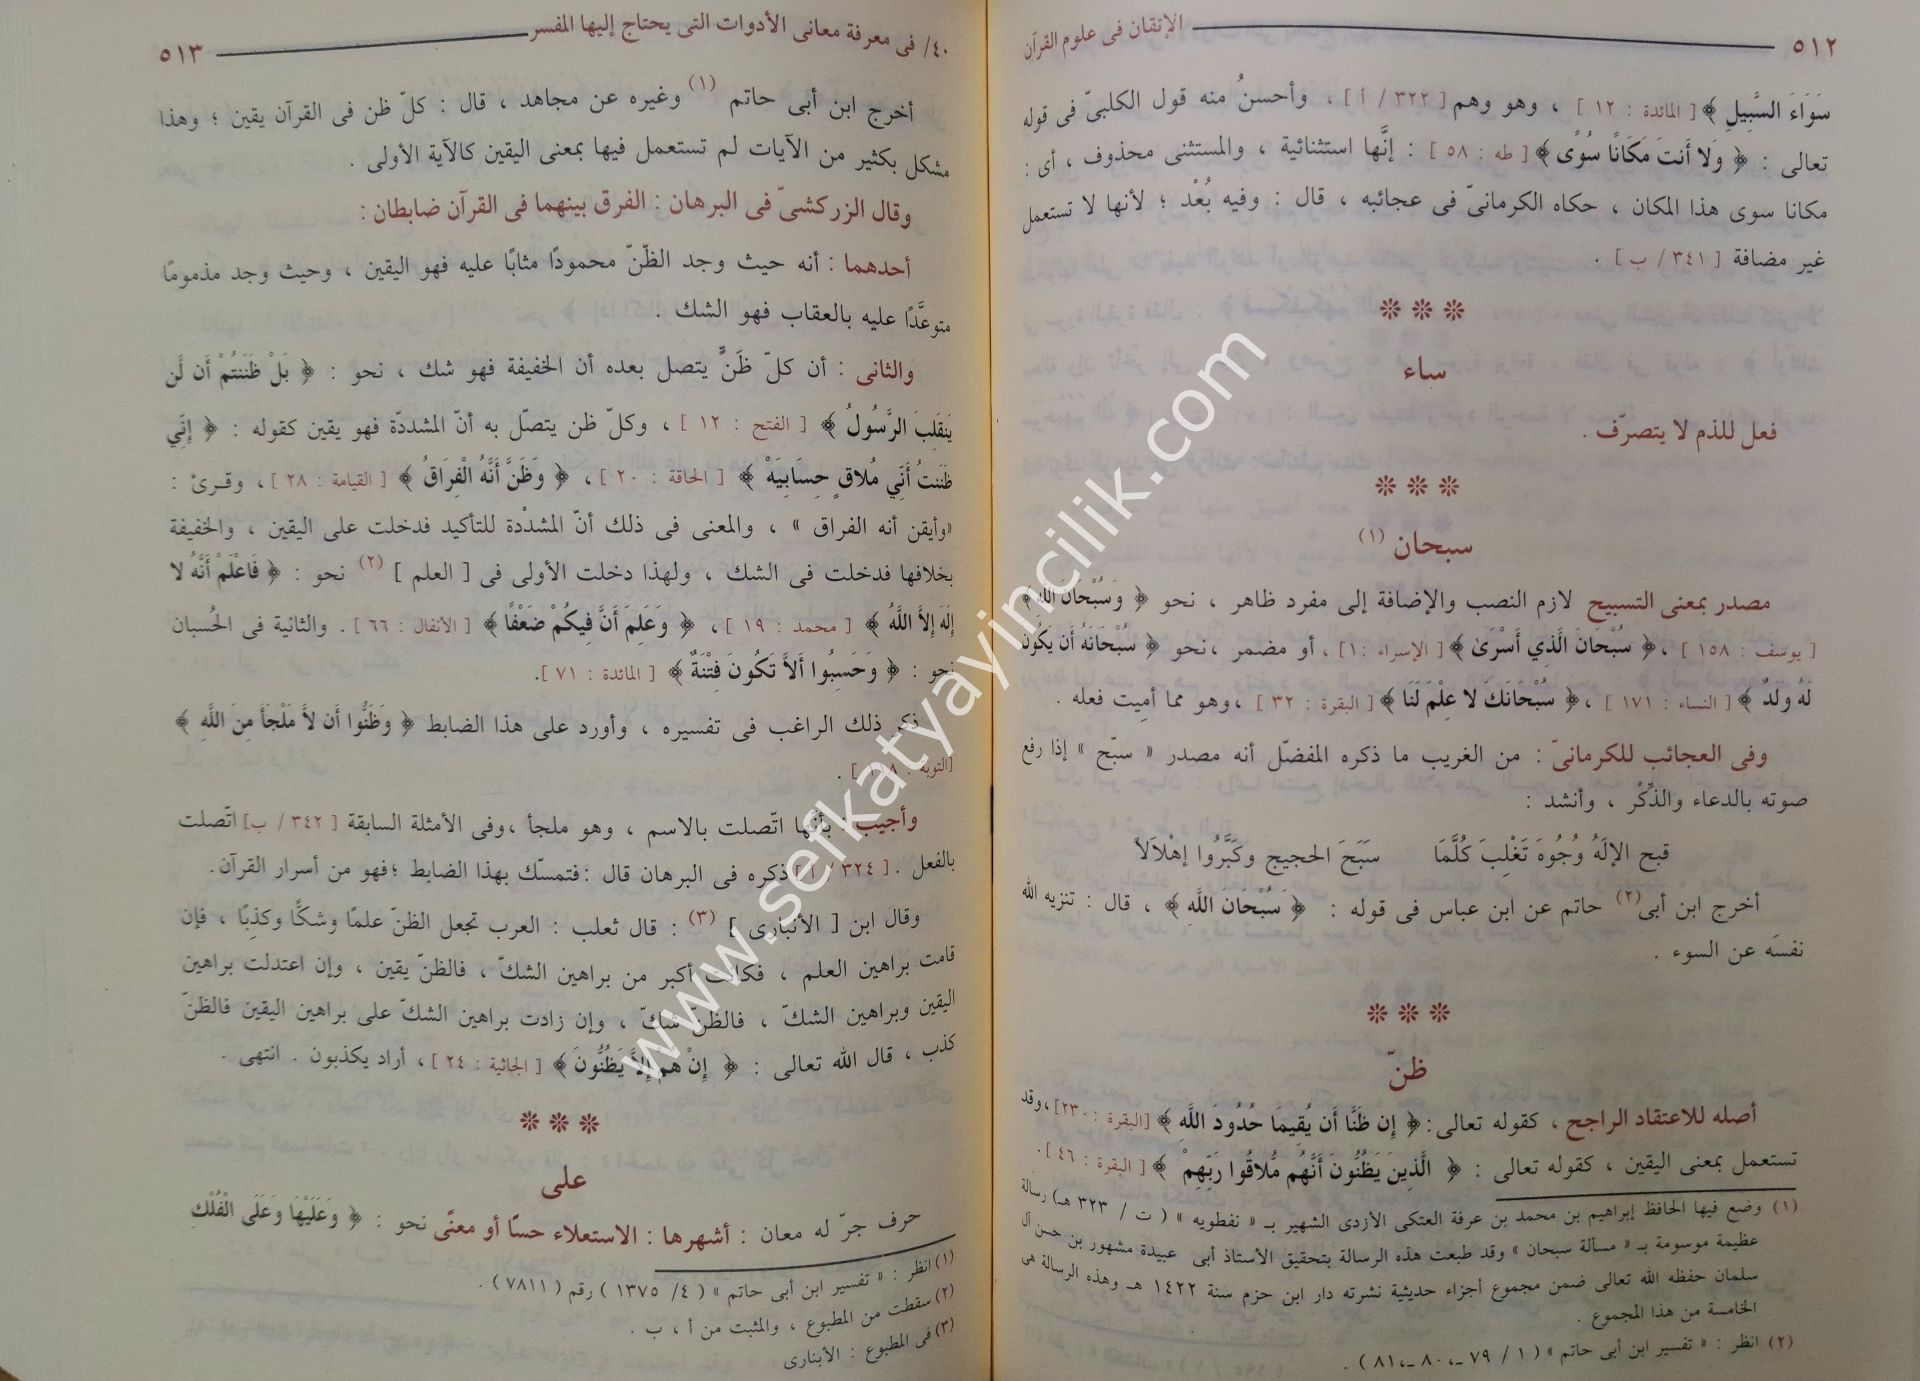 ٥١٢ الإتقان فى علوم القرآن
سَوَاءَ السَّبِيلِ ﴾ [ المائدة : ١٢ ] ، وهو وهم [ ٣٢٢ / أ ] ، وأحسنُ منه قول الكلبىّ فى قوله
تعالى : ﴿ وَلا أَنتَ مَكَانًا سُوًى ﴾ [ طه : ٥٨ ] : إنَّها استثنائية ، والمستثنى محذوف ، أى :
مكانا سوى هذا المكان ، حكاه الكرمانىّ فى عجائبه ، قال : وفيه بُعْد ؛ لأنها لا تستعمل
غير مضافة [ ٣٤١ / ب ] .
❊ ❊ ❊
ساء
فعل للذم لا يتصرّف .
❊ ❊ ❊
سبحان (١)
مصدر بمعنى التسبيح لازم النصب والإضافة إلى مفرد ظاهر ، نحو ﴿ وَسُبْحَانَ اللَّهِ ﴾
[ يوسف : ١٥٨ ] ، ﴿ سُبْحَانَ الَّذِي أَسْرَىٰ ﴾ [ الإسراء : ١] ، أو مضمر ، نحو ﴿ سُبْحَانَهُ أَن يَكُونَ
لَهُ وَلَدٌ ﴾ [ النساء : ١٧١ ] ، ﴿ سُبْحَانَكَ لا عِلْمَ لَنَا ﴾ [ البقرة : ٣٢ ] ، وهو مما أمِيت فعله .
وفى العجائب للكرمانىّ : من الغريب ما ذكره المفضّل أنه مصدر « سبّح » إذا رفع
صوته بالدعاء والذِّكْر ، وأنشد :
قبح الإلَهُ وُجُوهَ تَغْلِبَ كُلَّمَا سَبَحَ الحجيج وكَبَّرُوا إهْلاَلاً
أخرج ابن أبى (٢) حاتم عن ابن عباس فى قوله : ﴿ سُبْحَانَ اللَّهِ ﴾ ، قال : تنزيه الله
نفسَه عن السوء .
❊ ❊ ❊
ظنّ
أصله للاعتقاد الراجح ، كقوله تعالى : ﴿ إِن ظَنَّا أَن يُقِيمَا حُدُودَ اللَّهِ ﴾ [البقرة : ٢٣٠] ، وقد
تستعمل بمعنى اليقين ، كقوله تعالى : ﴿ الَّذِينَ يَظُنُّونَ أَنَّهُم مُّلاقُوا رَبِّهِمْ ﴾ [ البقرة : ٤٦ ] .
(١) وضع فيها الحافظ إبراهيم بن محمد بن عرفة العتكى الأزدى الشهير بـ « نفطويه » ( ت / ٣٢٣ هـ) رسالة
عظيمة موسومة بـ « مسألة سبحان » وقد طبعت هذه الرسالة بتحقيق الأستاذ أبى عبيدة مشهور بن حسن آل
سلمان حفظه الله تعالى ضمن مجموع أجزاء حديثية نشرته دار ابن حزم سنة ١٤٢٢ هـ وهذه الرسالة هى
الخامسة من هذا المجموع .
(٢) انظر : « تفسير ابن أبى حاتم » ( ١ / ٧٩ ـ ، ٨٠ ـ ، ٨١ ) .
٤٠/ فى معرفة معانى الأدوات التى يحتاج إليها المفسر ٥١٣
أخرج ابن أبى حاتم (١) وغيره عن مجاهد ، قال : كلّ ظن فى القرآن يقين ؛ وهذا
مشكل بكثير من الآيات لم تستعمل فيها بمعنى اليقين كالآية الأولى .
وقال الزركشىّ فى البرهان : الفرق بينهما فى القرآن ضابطان :
أحدهما : أنه حيث وجد الظّنّ محمودًا مثابًا عليه فهو اليقين ، وحيث وجد مذمومًا
متوعَّدًا عليه بالعقاب فهو الشك .
والثانى : أن كلّ ظَنٍّ يتصل بعده أن الخفيفة فهو شك ، نحو : ﴿ بَلْ ظَنَنتُمْ أَن لَّن
يَنقَلِبَ الرَّسُولُ ﴾ [ الفتح : ١٢ ] ، وكلّ ظن يتصّل به أنّ المشددّة فهو يقين كقوله : ﴿ إِنِّي
ظَنَنتُ أَنِّي مُلاقٍ حِسَابِيَهْ ﴾ [ الحاقة : ٢٠ ] ، ﴿ وَظَنَّ أَنَّهُ الْفِرَاقُ ﴾ [ القيامة : ٢٨ ] ، وقرئ :
«وأيقن أنه الفراق » ، والمعنى فى ذلك أنّ المشدْدة للتأكيد فدخلت على اليقين ، والخفيفة
بخلافها فدخلت فى الشك ، ولهذا دخلت الأولى فى [ العلم ] (٢) نحو : ﴿ فَاعْلَمْ أَنَّهُ لا
إِلَهَ إِلاَّ اللَّهُ ﴾ [ محمد : ١٩ ] ، ﴿ وَعَلِمَ أَنَّ فِيكُمْ ضَعْفًا ﴾ [ الأنفال : ٦٦ ] . والثانية فى الحُسبان
نحو : ﴿ وَحَسِبُوا أَلاَّ تَكُونَ فِتْنَةٌ ﴾ [ المائدة : ٧١ ] .
ذكر ذلك الراغب فى تفسيره ، وأورد على هذا الضابط ﴿ وَظَنُّوا أَن لاَّ مَلْجَأَ مِنَ اللَّهِ ﴾
[التوبة : ] .
وأجيب : بأنها اتّصلت بالاسم ، وهو ملجأ ، وفى الأمثلة السابقة [ ٣٤٢ / ب] اتّصلت
بالفعل . [ ٣٢٤ / أ ] ذكره فى البرهان قال : فتمسّك بهذا الضابط ؛ فهو من أسرار القرآن .
وقال ابن [ الأنبارى ] (٣) : قال ثعلب : العرب تجعل الظنّ علمًا وشكًّا وكذِبًا ، فإن
قامت براهين العلم ، فكانت أكبر من براهين الشكّ ، فالظنّ يقين ، وإن اعتدلت براهين
اليقين وبراهين الشكّ ، فالظن شكّ ، وإن زادت براهين الشكّ على براهين اليقين فالظنّ
كذب ، قال الله تعالى : ﴿ إِنْ هُمْ إِلاَّ يَظُنُّونَ ﴾ [ الجاثية : ٢٤ ] ، أراد يكذبون . انتهى .
❊ ❊ ❊
على
حرف جرّ له معان : أشهرها : الاستعلاء حسًا أو معنًى نحو : ﴿ وَعَلَيْهَا وَعَلَى الْفُلْكِ
(١) انظر : « تفسير ابن أبى حاتم » ( ٤/ ١٣٧٥ ) رقم ( ٧٨١١ ) .
(٢) سقطت من المطبوع ، والمثبت من أ ، ب .
(٣) فى المطبوع : الأبنارى
www.sefkatyayincilik.com